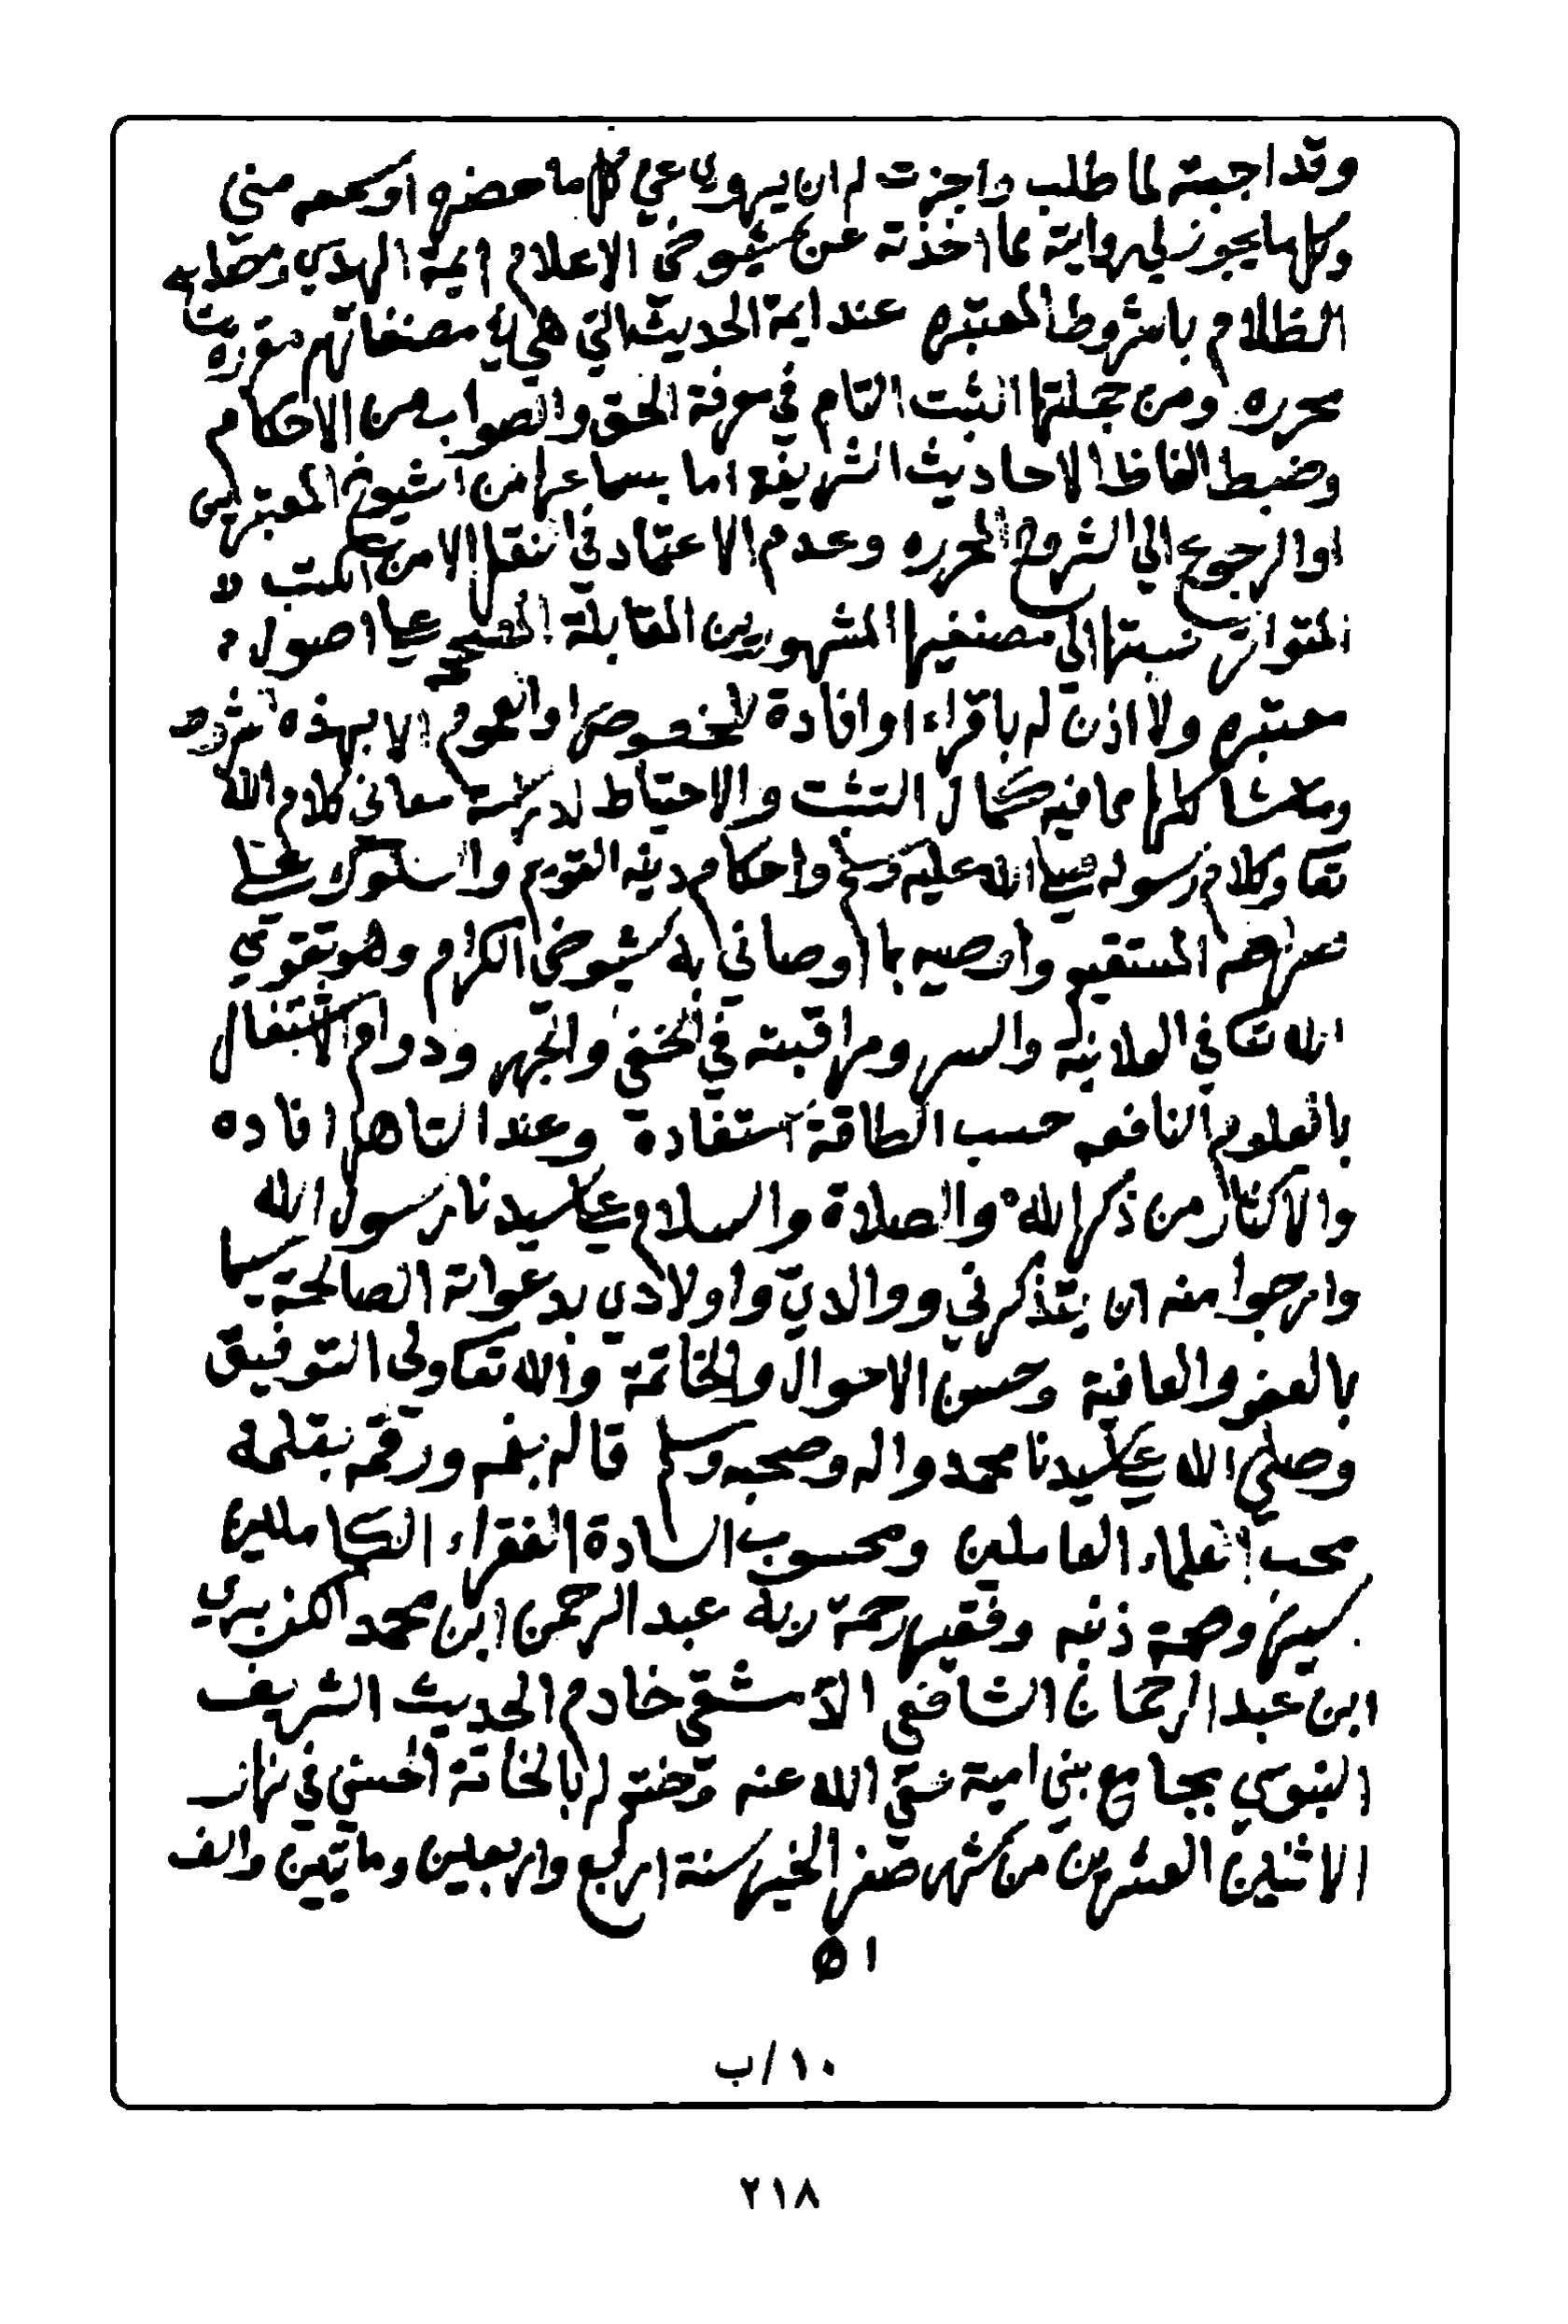 وقد اجبته لما طلب واجزت له ان يروي عني كل ما حضره او سمعه مني
وكل ما يجوز لي روايته مما اخذته عن شيوخي الاعلام ايمة الهدي ومصابيح
الظلام بالشروط المعتبره عند ايمة الحديث التي هي في مصنفاتهم مقررة
محرره ومن جملتها التثبت التام في معرفة الحق والصواب من الاحكام
وضبط الفاظ الاحاديث الشريفه اما بسماعها من الشيوخ المعتبرين
او الرجوع الي الشروح المحرره وعدم الاعتماد في النقل الا من الكتب
المتواتر نسبتها الى مصنفيها المشهورين المقابلة المصححه على اصول
معتبره ولا اذن له باقراء او افادة لخصوص او العموم الا بهذه الشروط
وما شاكلها مما فيه كمال التثبت والاحتياط لدراسة معاني كلام الله
تعا وكلام رسوله صلى الله عليه وسلم واحكام دينه القويم والسلوك على
صراطه المستقيم واوصيه بما اوصاني به شيوخي الكرام وهو تقوي
الله تعا في العلانية والسر ومراقبته في الخفي والجهر ودوام الاشتغال
بالعلوم النافعه حسب الطاقة استفادة وعند التاهل افاده
والاكثار من ذكر الله والصلاة والسلام على سيدنا رسول الله
وارجوا منه ان يتذكرني ووالدي واولادي بدعواته الصالحة سيما
بالعفو والعافية وحسن الاحوال والخاتمة والله تعا ولى التوفيق
وصلى الله على سيدنا محمد واله وصحبه وسلم قاله بفمه ورقمه بقلمه
محب العلماء العاملين ومحسوب السادة الفقراء الكاملين
اسير وصمة ذنبه وفقير رحمة ربه عبد الرحمن ابن محمد الكزبري
ابن عبد الرحمان الشافعي الدمشقي خادم الحديث الشريف
النبوي بجامع بني امية عفي الله عنه وختم له بالخاتمة الحسني في نهار
الاثنين العشرين من شهر صفر الخير سنة اربع واربعين ومايتين والف
اه
١٠/ب
٢١٨